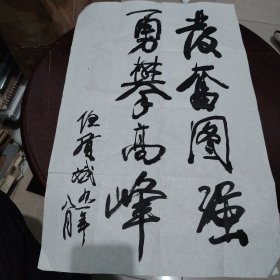 发奋图强
勇攀高峰
任有斌 九一年
八月